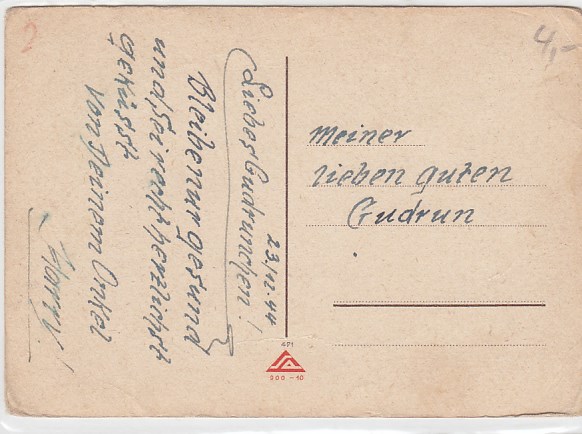 23/12.44
Liebes Gudrunchen!
Bleibe nur gesund
und sei recht herzlichst
geküsst
von Deinem Onkel
Harry!
Meiner
lieben guten
Gudrun
4,-
2
471
000-10